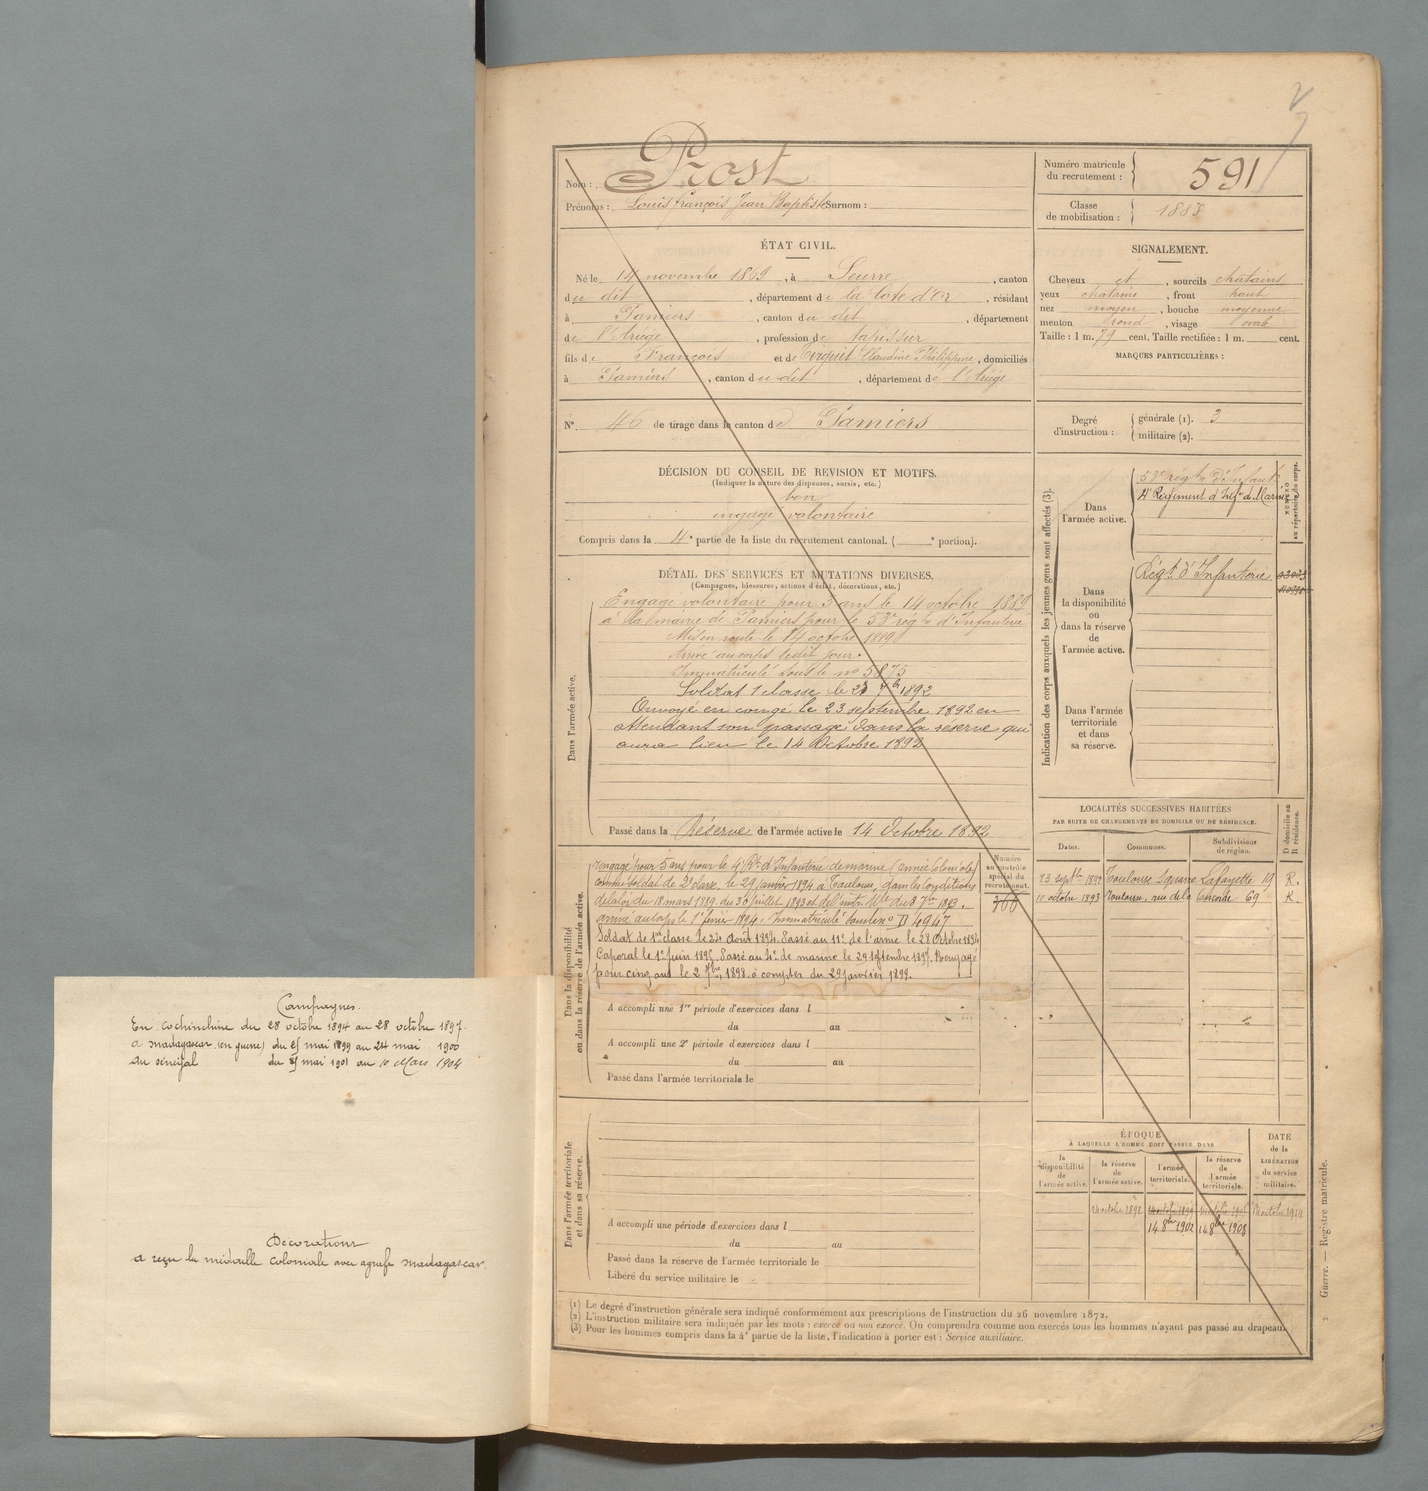 Nom : Prost
Prénoms : Louis François Jean Baptiste Surnom :
Numéro matricule du recrutement : 591
Classe de mobilisation : 1888
ÉTAT CIVIL.
Né le 14 novembre 1869, à Seurre, canton
du dit, département de la Cote d'Or, résidant
à Pamiers, canton du dit, département
de l'Ariège, profession de tapissier
fils de François et de Claudine Philippine, domiciliés
à Pamiers, canton du dit, département de l'Ariège
SIGNALEMENT.
Cheveux et, sourcils chatains
yeux chatains, front haut
nez moyen, bouche moyenne
menton rond, visage ovale
Taille : 1 m. 79 cent. Taille rectifiée : 1 m. cent.
MARQUES PARTICULIÈRES :
N°. 46 de tirage dans le canton de Pamiers
Degré d'instruction : générale (1). 3
militaire (2).
DÉCISION DU CONSEIL DE REVISION ET MOTIFS.
(Indiquer la nature des dispenses, sursis, etc.)
bon
engagé volontaire
Compris dans la 4e partie de la liste du recrutement cantonal. ( e portion).
DÉTAIL DES SERVICES ET MUTATIONS DIVERSES.
(Campagnes, blessures, actions d'éclat, décorations, etc.)
Dans l'armée active.
Engagé volontaire pour 3 ans le 14 octobre 1889
à la mairie de Pamiers pour le 53e régt d'Infanterie
Mis en route le 14 octobre 1889
Arrivé au corps le dit jour.
Immatriculé sous le no 5875
Soldat 1 classe le 23 7bre 1892
Envoyé en congé le 23 septembre 1892 en
attendant son passage dans la réserve qui
aura lieu le 14 Octobre 1892
Passé dans la Réserve de l'armée active le 14 Octobre 1892
Indication des corps auxquels les jeunes gens sont affectés (3).
NUMÉRO au répertoire du corps.
Dans l'armée active.
53e régt d'Infanterie
4e Régiment d'Infie de Marine
Dans la disponibilité ou dans la réserve de l'armée active.
Régt d'Infanterie
Dans l'armée territoriale et dans sa réserve.
Dans la disponibilité ou dans la réserve de l'armée active.
Numéro au contrôle spécial du recrutement.
Rengagé pour 5 ans pour le 4e Rt d'Infanterie de marine (armée Coloniale)
comme soldat de 2e classe, le 29 janvier 1894 à Toulouse, dans les conditions
de la loi du 18 mars 1889, du 30 juillet 1893 et de l'instr. Mlle du 8 7bre 1893.
arrivé au corps le 1er février 1894. Immatriculé sous le no D 4947
Soldat de 1re classe le 24 Août 1894. Passé au 11e de l'arme le 28 Octobre 1894
Caporal le 1er juin 1895. Passé au 4e de marine le 29 septembre 1897. Rengagé
pour cinq ans le 2 7bre 1898 à compter du 29 janvier 1899.
A accompli une 1re période d'exercices dans l
du au
A accompli une 2e période d'exercices dans l
du au
Passé dans l'armée territoriale le
LOCALITÉS SUCCESSIVES HABITÉES
PAR SUITE DE CHANGEMENTS DE DOMICILE OU DE RÉSIDENCE.
Dates. Communes. Subdivisions de région. D domicile ou R résidence.
23 septbre 1892 Toulouse Square Lafayette 19 R.
10 octobre 1893 Toulouse, rue de la Concorde 69 R.
Dans l'armée territoriale et dans sa réserve.
A accompli une période d'exercices dans l
du au
Passé dans la réserve de l'armée territoriale le
Libéré du service militaire le
ÉPOQUE
À LAQUELLE L'HOMME DOIT PASSER DANS
la disponibilité de l'armée active.
la réserve de l'armée active.
l'armée territoriale.
la réserve de l'armée territoriale.
DATE de la LIBÉRATION du service militaire.
14 octobre 1892
14 8bre 1902 14 8bre 1908
(1) Le degré d'instruction générale sera indiqué conformément aux prescriptions de l'instruction du 26 novembre 1872.
(2) L'instruction militaire sera indiquée par les mots : exercé ou non exercé. On comprendra comme non exercés tous les hommes n'ayant pas passé au drapeau.
(3) Pour les hommes compris dans la 4e partie de la liste, l'indication à porter est : Service auxiliaire.
Guerre. — Registre matricule.
Campagnes.
En cochinchine du 28 octobre 1894 au 28 octobre 1897.
a madagascar (en guerre) du 25 mai 1899 au 24 mai 1900
au sénégal du 25 mai 1901 au 10 Mars 1904
Décorations
a reçu la médaille coloniale avec agrafe madagascar.